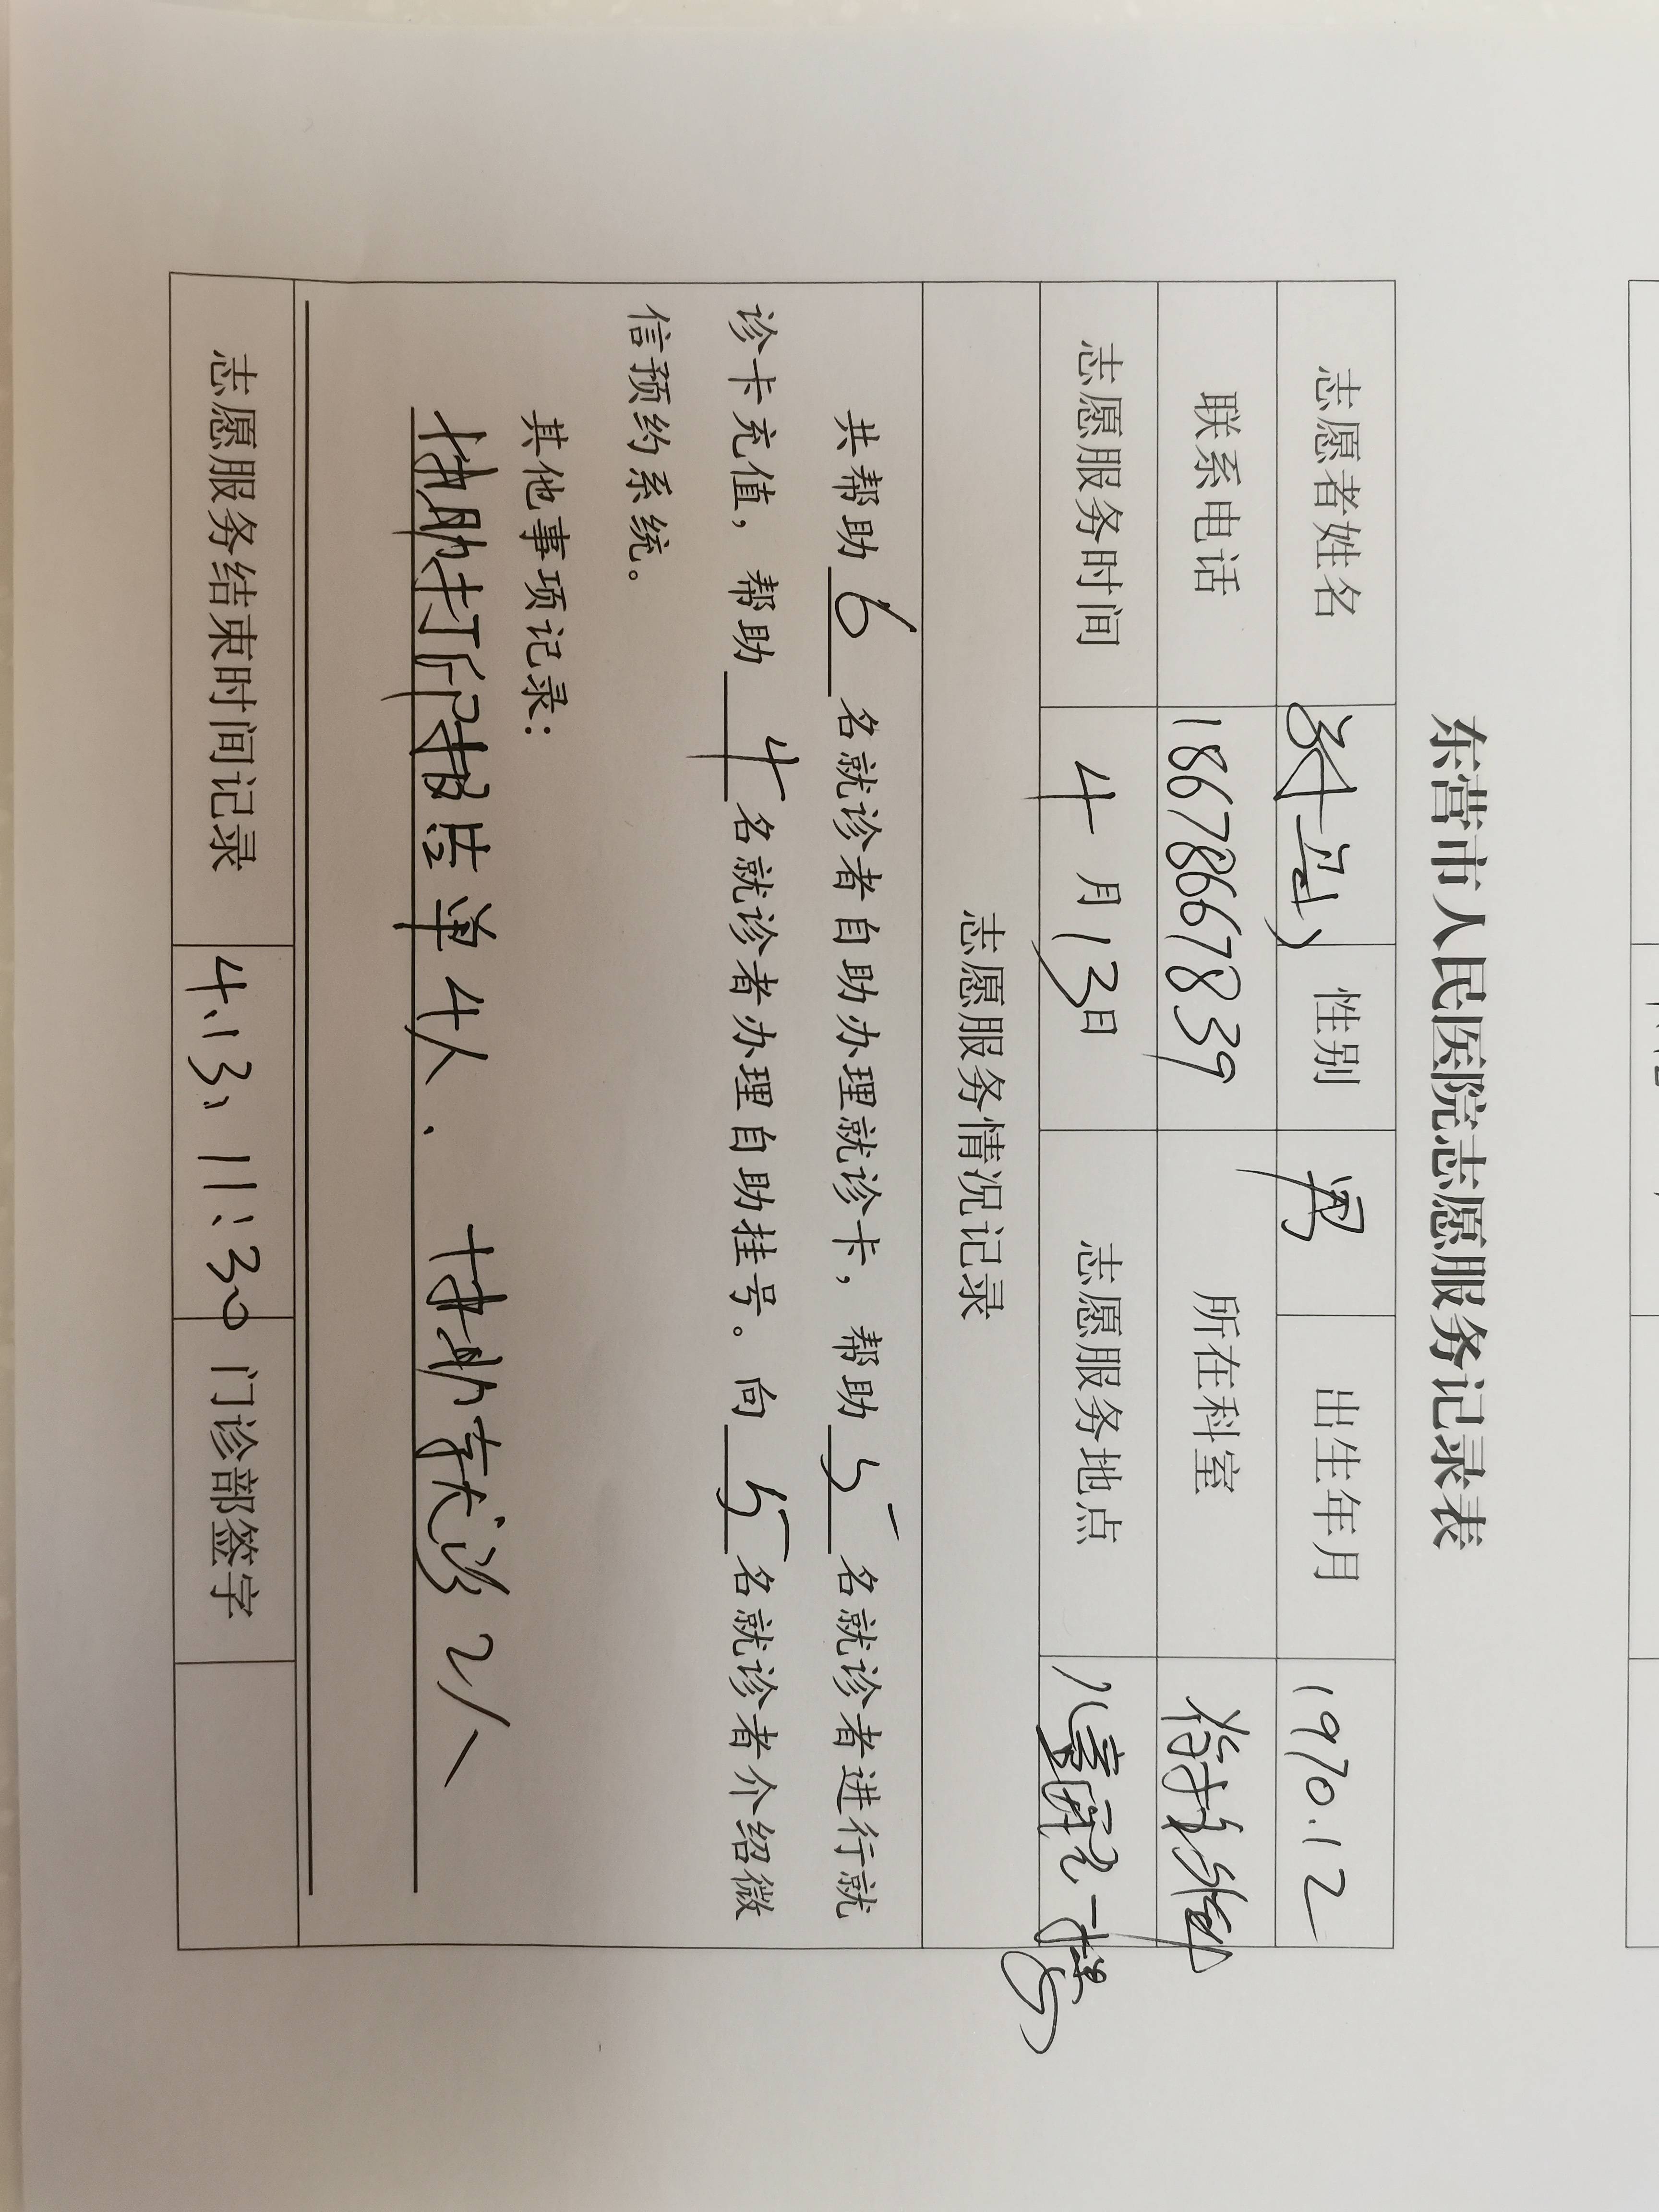 东营市人民医院志愿服务记录表
志愿者姓名 性别 男 出生年月 1970.12
联系电话 18678667839 所在科室
志愿服务时间 4月13日 志愿服务地点 儿童医院一楼
志愿服务情况记录
共帮助6名就诊者自助办理就诊卡，帮助5名就诊者进行就
诊卡充值，帮助4名就诊者办理自助挂号。向5名就诊者介绍微
信预约系统。
其他事项记录：
帮助打印报告单4人. 帮助就诊2人
志愿服务结束时间记录 4.13、11:30 门诊部签字